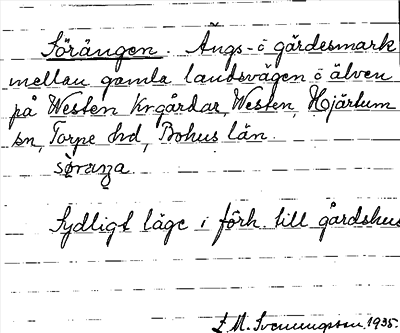 Sörängen. Ängs- o gärdesmark
mellan gamla landsvägen o älven
på Westen Krgårdar, Westen, Hjärtum
sn, Torpe hd, Bohus län.
sø̀raŋa
Sydligt läge i förh. till gårdshus
E. M. Svenungsson. 1935.